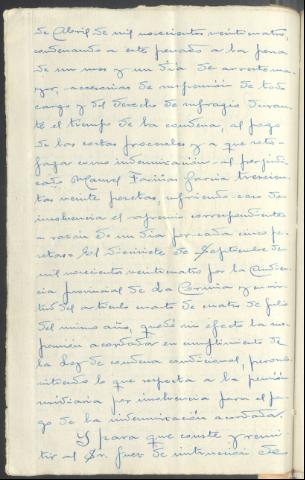 de Abril de mil novecientos veinticuatro,
condenando a este penado a la pena
de un mes y un día de arresto ma-
yor, accesorias de suspensión de todo
cargo y del derecho de sufragio duran-
te el tiempo de la condena, al pago
de las costas procesales y a que satis-
faga como indemnización al perjudi-
cado, Manuel Fariñas García trescien-
tas veinte pesetas sufriendo caso de
insolvencia el apremio correspondiente
a razón de un día por cada cinco pe-
setas. El diecisiete de Septiembre de
mil novecientos veinticuatro por la Audien-
cia provincial de La Coruña y en vir-
tud del artículo cuarto de cuatro de julio
del mismo año, quedó sin efecto la sus-
pensión acordada en cumplimiento de
la Ley de condena condicional,
lo que respecta a la prisión
subsidiaria por insolvencia para el pa-
go de la indemnización acordada.
Y para que conste y remi-
tir al Sr. Juez de instrucción de